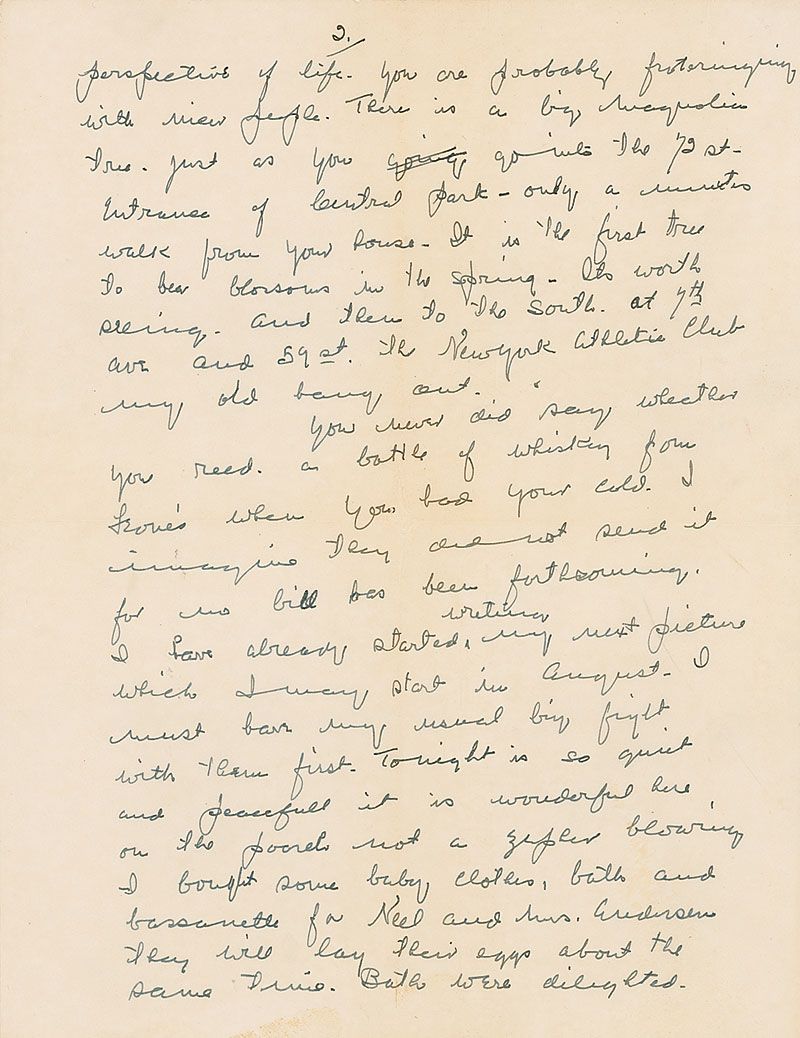 2.
perspective of life. You are probably froteringing
with nicer people. There is a big Magnolia
Tree. Just as you going go into the 72 st-
Entrance of Central Park - only a minutes
walk from your house - It is the first tree
to bear blossoms in the spring - Its worth
seeing. And then to the South. at 7th
ave and 59 st. The Newyork Athletic Club
my old hang out.
You never did say wheather
you recd. a bottle of whiskey from
Leone's when you had your cold. I
immagine they did not send it
for no bill has been forthcoming.
writing
I have already started, my next picture
which I may start in August - I
must have my usual big fight
with them first. Tonight is so quiet
and peacefull it is wonderful here
on the poarch not a zepher blowing
I bought some baby clothes, bath and
bassanette for Neel and Mrs. Andersen
They will lay their eggs about the
same time. Both were dilighted.